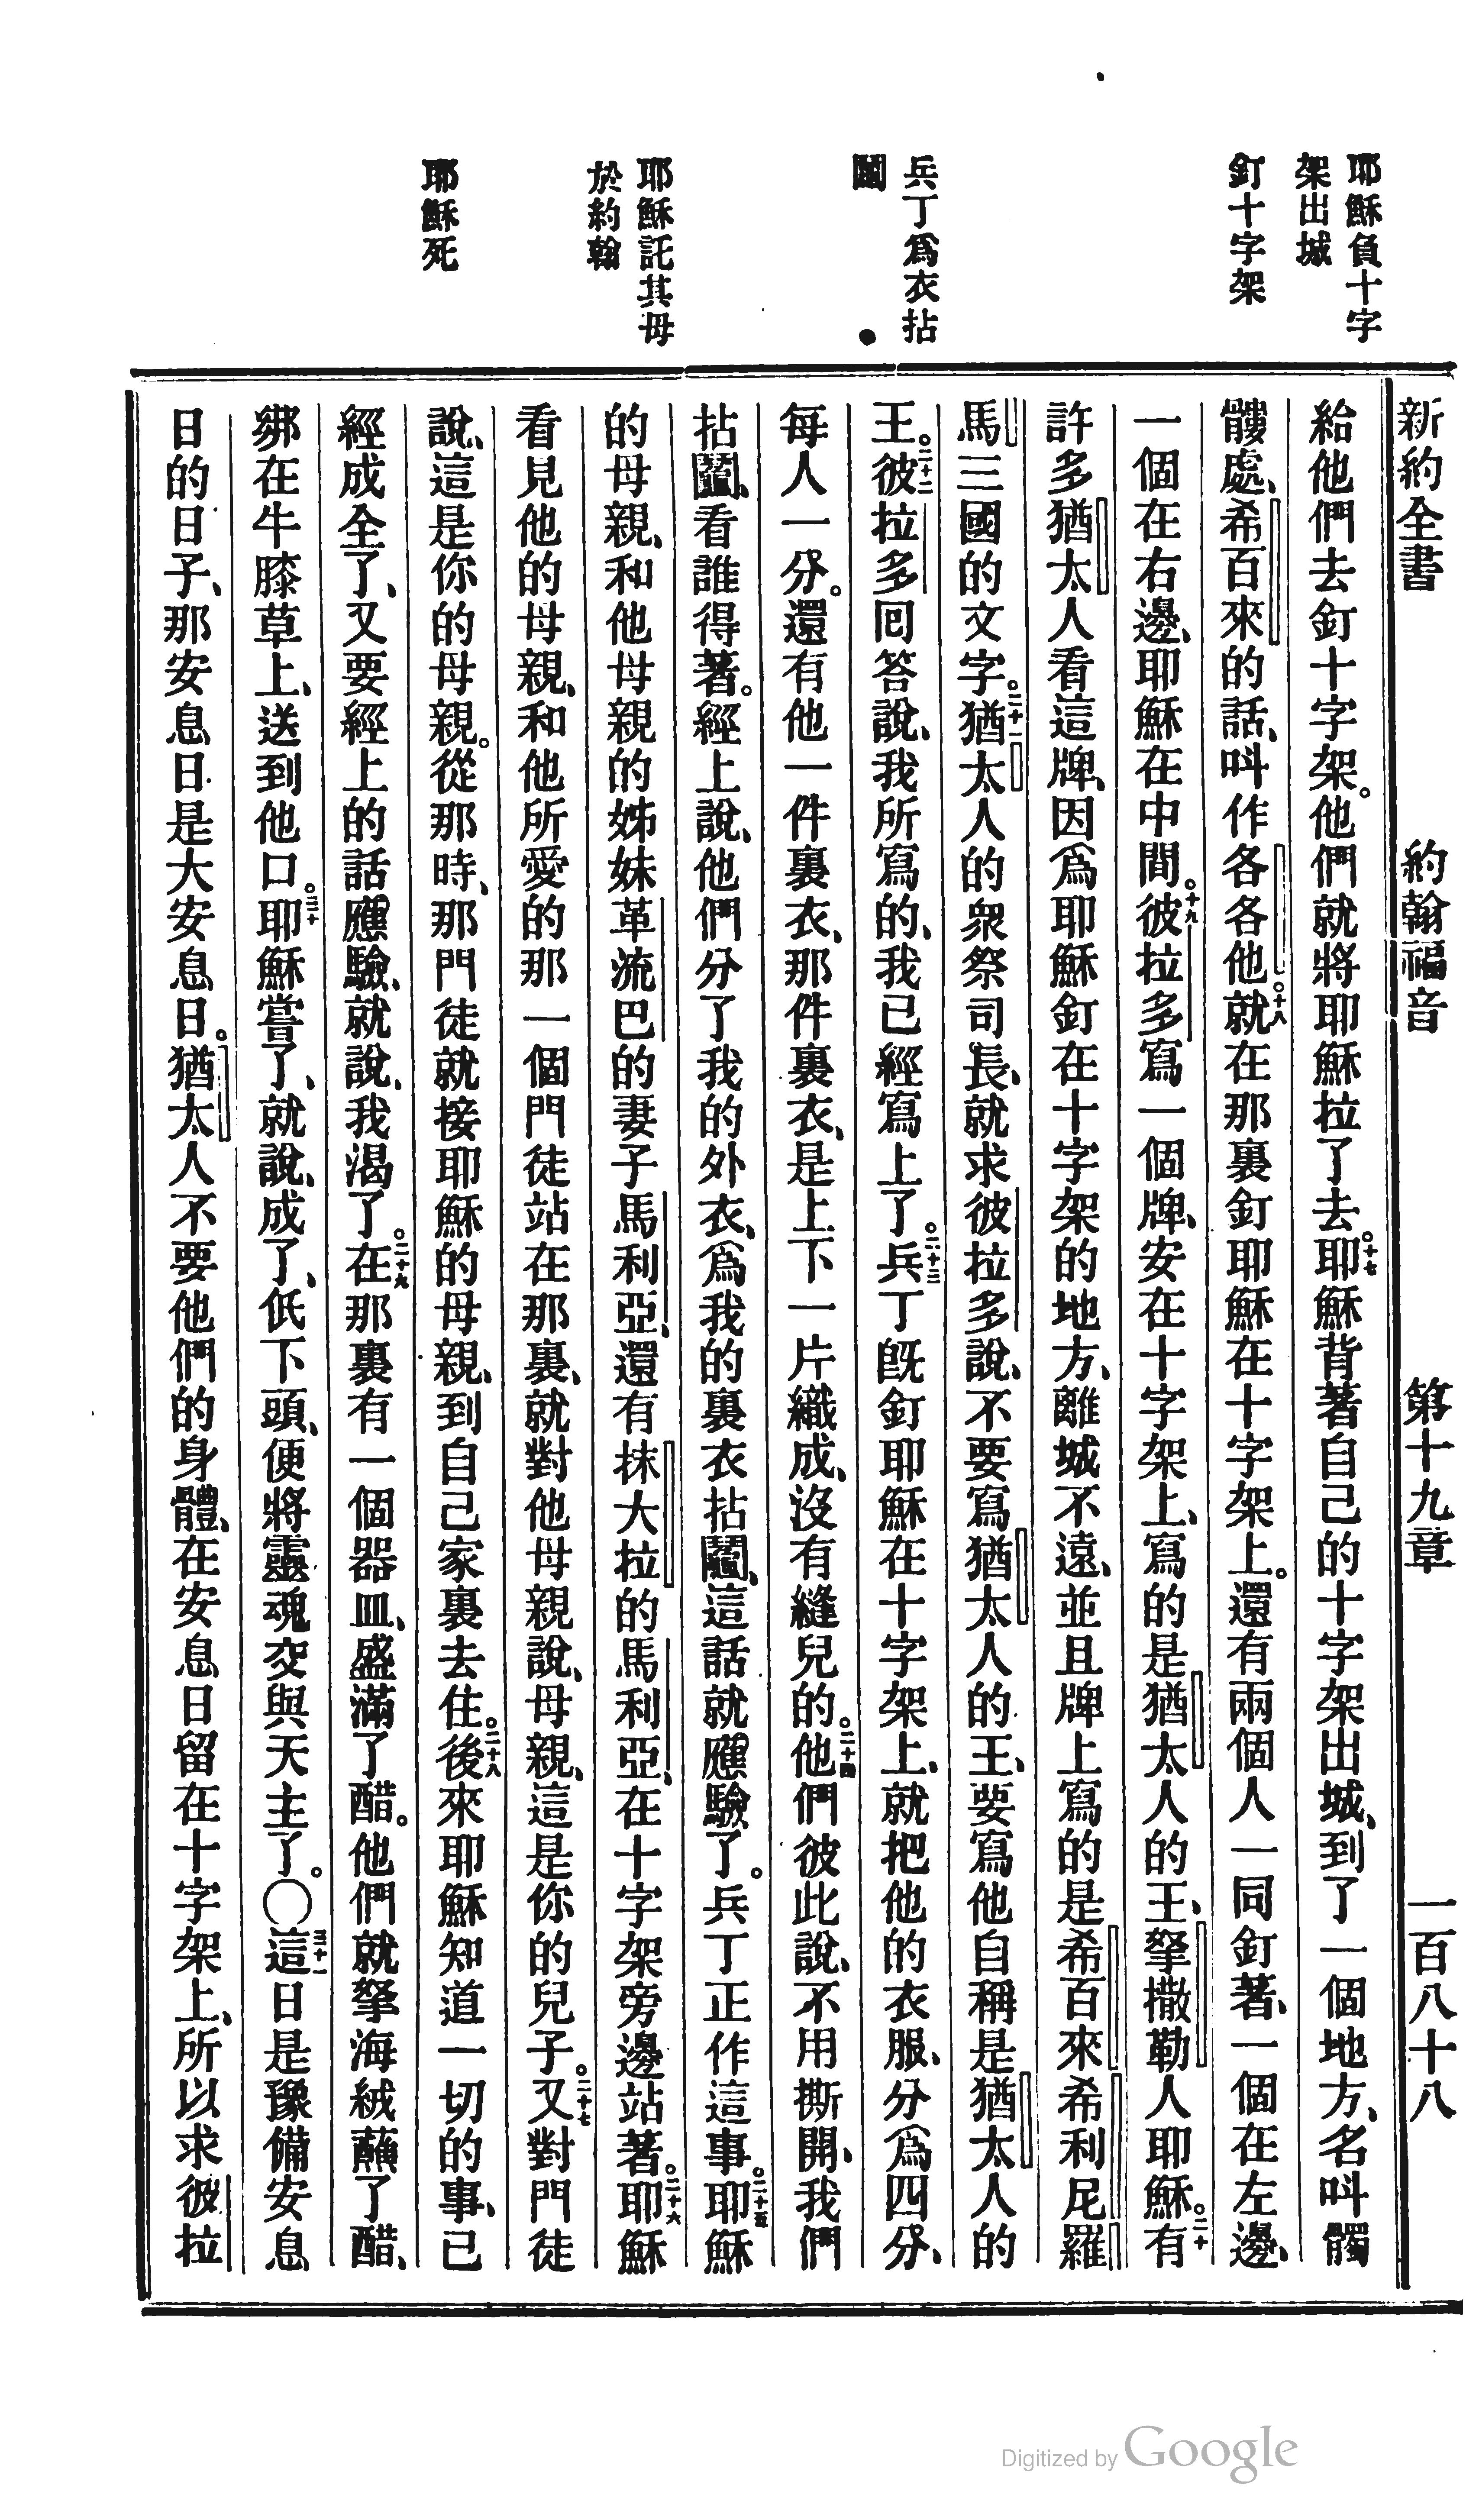 耶穌負十字
架出城
釘十字架
兵丁爲衣拈
鬮
耶穌託其母
於約翰
耶穌死
新約全書 約翰福音 第十九章 一百八十八
給他們去釘十字架。他們就將耶穌拉了去。十七耶穌背著自己的十字架出城、到了一個地方、名呌髑
髏處、希百來的話、呌作各各他。十八就在那裏釘耶穌在十字架上。還有兩個人一同釘著、一個在左邊、
一個在右邊、耶穌在中間。十九彼拉多寫一個牌、安在十字架上、寫的是猶太人的王、拏撒勒人耶穌。二十有
許多猶太人看這牌、因爲耶穌釘在十字架的地方、離城不遠、並且牌上寫的是希百來希利尼羅
馬三國的文字。二十一猶太人的衆祭司長、就求彼拉多說、不要寫猶太人的王、要寫他自稱是猶太人的
王。二十二彼拉多囘答說、我所寫的、我已經寫上了。二十三兵丁旣釘耶穌在十字架上、就把他的衣服、分爲四分、
每人一分。還有他一件裏衣、那件裏衣、是上下一片織成、沒有縫兒的。二十四他們彼此說、不用撕開、我們
拈鬮、看誰得著。經上說、他們分了我的外衣、爲我的裏衣拈鬮、這話就應驗了。兵丁正作這事。二十五耶穌
的母親、和他母親的姊妹革流巴的妻子馬利亞、還有抹大拉的馬利亞、在十字架旁邊站著。二十六耶穌
看見他的母親、和他所愛的那一個門徒站在那裏、就對他母親說、母親、這是你的兒子。二十七又對門徒
說、這是你的母親。從那時、那門徒就接耶穌的母親、到自己家裏去住。二十八後來耶穌知道一切的事、已
經成全了、又要經上的話應驗、就說、我渴了。二十九在那裏有一個器皿、盛滿了醋。他們就拏海絨蘸了醋、
綁在牛膝草上、送到他口。三十耶穌嘗了、就說、成了、低下頭、便將靈魂交與天主了。〇三十一這日是豫備安息
日的日子、那安息日是大安息日。猶太人不要他們的身體、在安息日留在十字架上、所以求彼拉
Digitized by Google